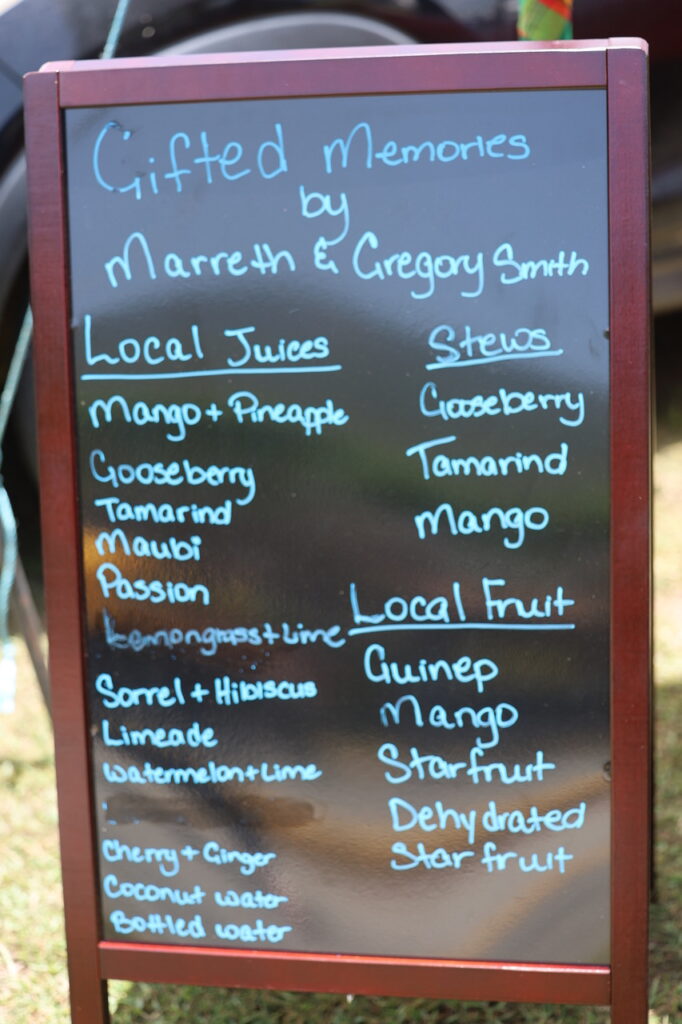 Gifted Memories
by
Marreth & Gregory Smith
Local Juices
Mango + Pineapple
Gooseberry
Tamarind
Maubi
Passion
Lemongrass + Lime
Sorrel + Hibiscus
Limeade
Watermelon + Lime
Cherry + Ginger
Coconut water
Bottled water
Stews
Gooseberry
Tamarind
Mango
Local Fruit
Guinep
Mango
Starfruit
Dehydrated
Starfruit